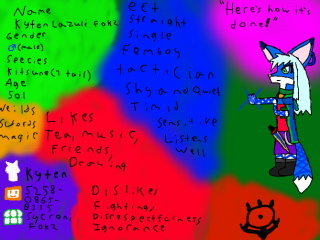 Name
Kyten Lazule Fokz
Gender
♂(male)
Species
Kitsune(7 tail)
Age
501
Weilds
Swords
magic
ect
Straight
Single
Femboy
tactician
Shy and Quiet
Timid
Sensitive
Listens
Well
"Here's how it's
done!"
Likes
Tea, music,
Friends
Drawing
Kyten
5258-
0865-
Sycron
Fokz
Dislikes
Fighting,
Disrespectfulness
Ignorance